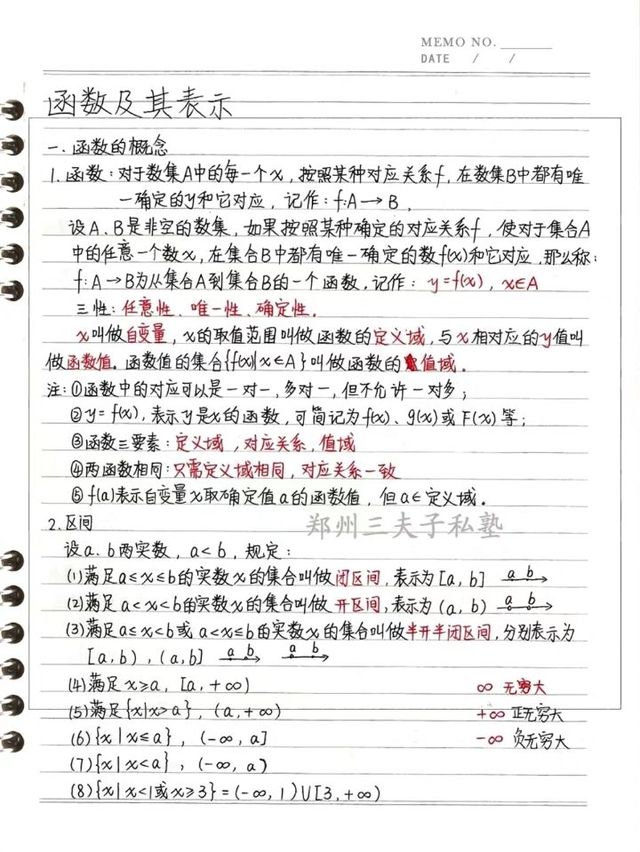 MEMO NO.
DATE / /
函数及其表示
一.函数的概念
1.函数:对于数集A中的每一个x,按照某种对应关系f,在数集B中都有唯
一确定的y和它对应,记作:f:A→B.
设A、B是非空的数集,如果按照某种确定的对应关系f,使对于集合A
中的任意一个数x,在集合B中都有唯一确定的数f(x)和它对应,那么称:
f:A→B为从集合A到集合B的一个函数,记作:y=f(x),x∈A
三性:任意性、唯一性、确定性.
x叫做自变量,x的取值范围叫做函数的定义域,与x相对应的y值叫
做函数值.函数值的集合{f(x)|x∈A}叫做函数的值域.
注:①函数中的对应可以是一对一,多对一,但不允许一对多;
②y=f(x),表示y是x的函数,可简记为f(x)、g(x)或F(x)等;
③函数三要素:定义域,对应关系,值域
④两函数相同:只需定义域相同,对应关系一致
⑤f(a)表示自变量x取确定值a的函数值,但a∈定义域.
2.区间
郑州三夫子私塾
设a、b两实数,a<b,规定:
(1)满足a≤x≤b的实数x的集合叫做闭区间,表示为[a,b] a b
(2)满足a<x<b的实数x的集合叫做开区间,表示为(a,b) a b
(3)满足a≤x<b或a<x≤b的实数x的集合叫做半开半闭区间,分别表示为
[a,b),(a,b] a b a b
(4)满足x≥a,[a,+∞) ∞ 无穷大
(5)满足{x|x>a},(a,+∞) +∞ 正无穷大
(6){x|x≤a},(-∞,a] -∞ 负无穷大
(7){x|x<a},(-∞,a)
(8){x|x<1或x≥3}=(-∞,1)∪[3,+∞)